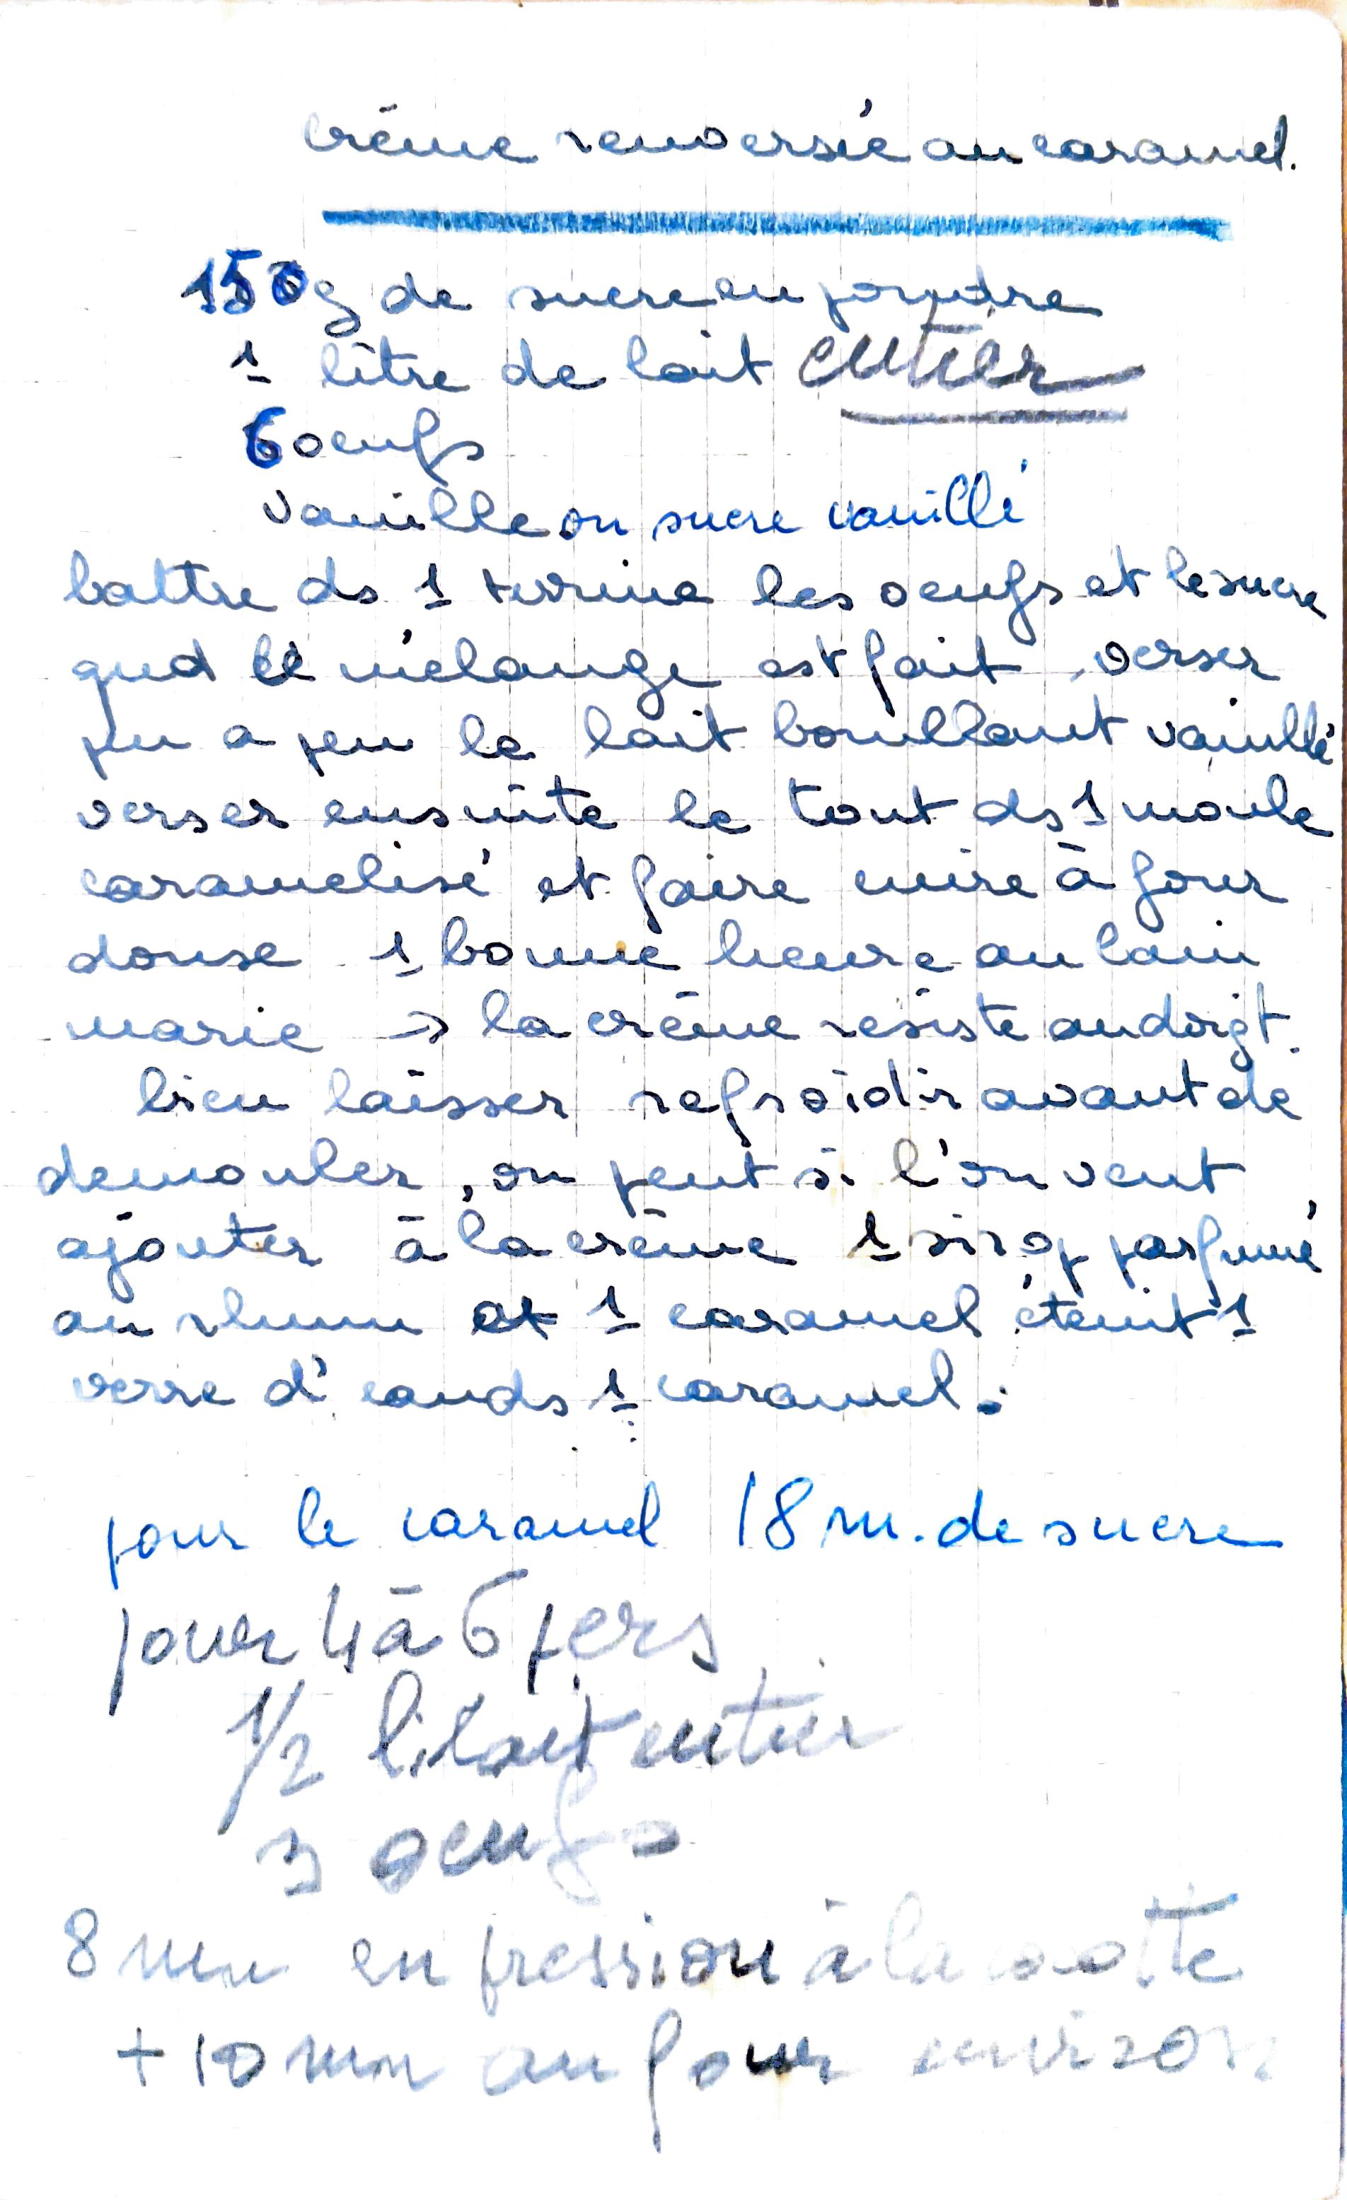 crême renversée au caramel.
150g de sucre en poudre
1 litre de lait entier
6 oeufs
vanille ou sucre vanillé
battre ds 1 terrine les oeufs et le sucre
qud le mélange est fait, verser
peu a peu le lait bouillant vanillé
verser ensuite le tout ds 1 moule
caramelisé et faire cuire à four
doux 1 bonne heure au bain
marie → la crême résiste au doigt.
bien laisser refroidir avant de
demouler, on peut si l'on veut
ajouter à la crême 1 sirop parfumé
au rhum et 1 caramel éteint 1
verre d'eau ds 1 caramel.
pour le caramel 18 m. de sucre
pour 4 à 6 pers
1/2 li. lait entier
3 oeufs
8 mn en pression à la cocotte
+ 10 mn au four environ